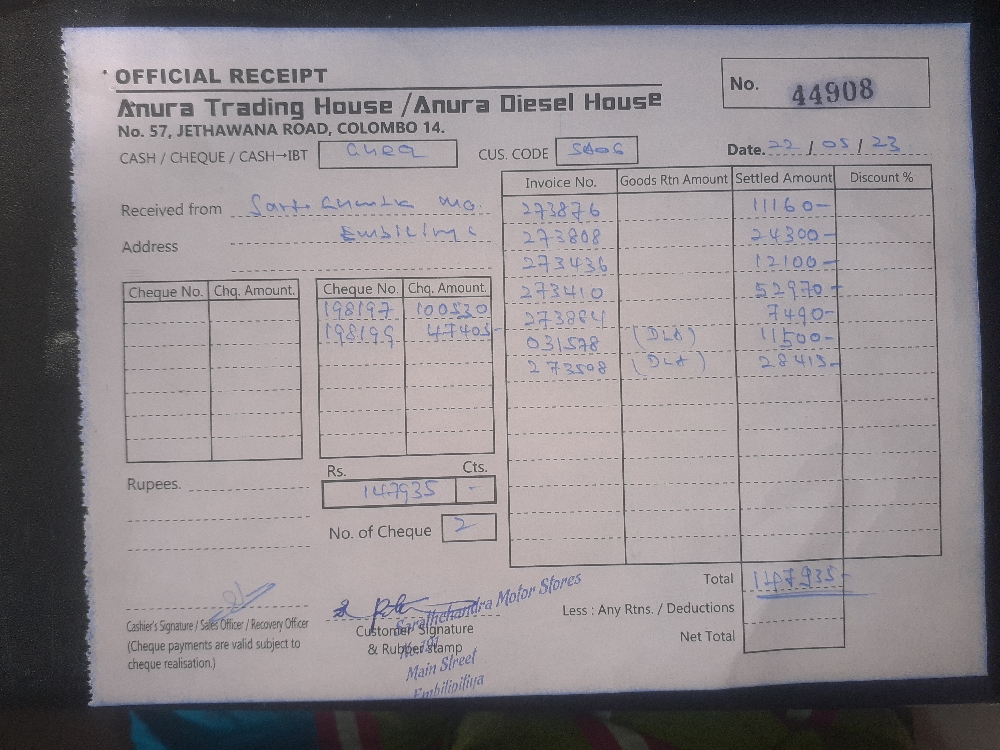 OFFICIAL RECEIPT
No. 44908
Anura Trading House / Anura Diesel House
No. 57, JETHAWANA ROAD, COLOMBO 14.
CASH / CHEQUE / CASH→IBT cheq CUS. CODE Date. 22 / 05 / 23
Invoice No. Goods Rtn Amount Settled Amount Discount %
Received from
Address
273876 11160-
273808 24300-
273436 12100-
273410 52970-
273884 7490-
031578 (DLA) 11500-
273508 (DLA) 28415-
Cheque No. Chq. Amount. Cheque No. Chq. Amount.
198197 100530
198199 47405-
Rupees.
Rs. Cts.
147935 -
No. of Cheque 2
Total 147935-
Less : Any Rtns. / Deductions
Net Total
Cashier's Signature / Sales Officer / Recovery Officer
(Cheque payments are valid subject to
cheque realisation.)
Customer Signature
& Rubber Stamp
Sarathchandra Motor Stores
Main Street
Embilipitiya